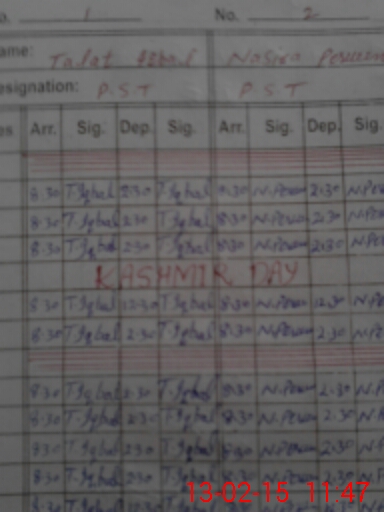 No. 1 No. 2
Name: Talat Iqbal Nasira Perveen
Designation: P.S.T P.S.T
Arr. Sig. Dep. Sig. Arr. Sig. Dep. Sig.
8:30 T.Iqbal 2:30 T.Iqbal 8:30 N.Perveen 2:30
8:30 T.Iqbal 2:30 T.Iqbal 8:30 N.Perveen 2:30
8:30 T.Iqbal 2:30 T.Iqbal 8:30 N.Perveen 2:30
KASHMIR DAY
8:30 T.Iqbal 12:30 T.Iqbal 8:30 N.Perveen 12:30
8:30 T.Iqbal 2:30 T.Iqbal 8:30 N.Perveen 2:30
8:30 T.Iqbal 2:30 T.Iqbal 8:30 N.Perveen 2:30
8:30 T.Iqbal 2:30 T.Iqbal 8:30 N.Perveen 2:30
8:30 T.Iqbal 2:30 T.Iqbal 8:30 N.Perveen 2:30
8:30 T.Iqbal 2:30 T.Iqbal 8:30 N.Perveen 2:30
8:30 T.Iqbal T.Iqbal 8:30 N.Perveen
13-02-15 11:47